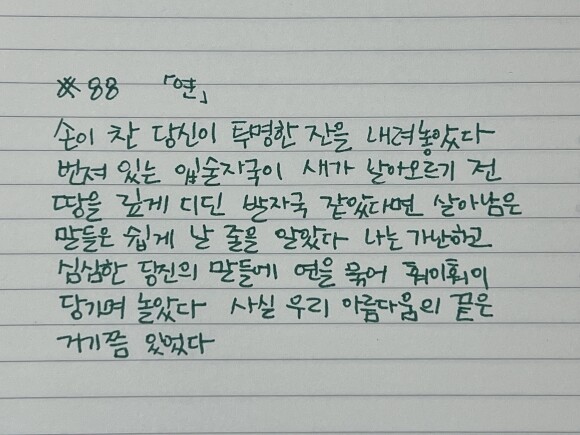 ※88 「연」
손이 찬 당신이 투명한 잔을 내려놓았다
번져 있는 입술자국이 새가 날아오르기 전
땅을 깊게 디딘 발자국 같았다면 살아남은
말들은 쉽게 날 줄을 알았다 나는 가난하고
심심한 당신의 말들에 연을 묶어 훠이훠이
당기며 놀았다 사실 우리 아름다움의 끝은
거기쯤 있었다